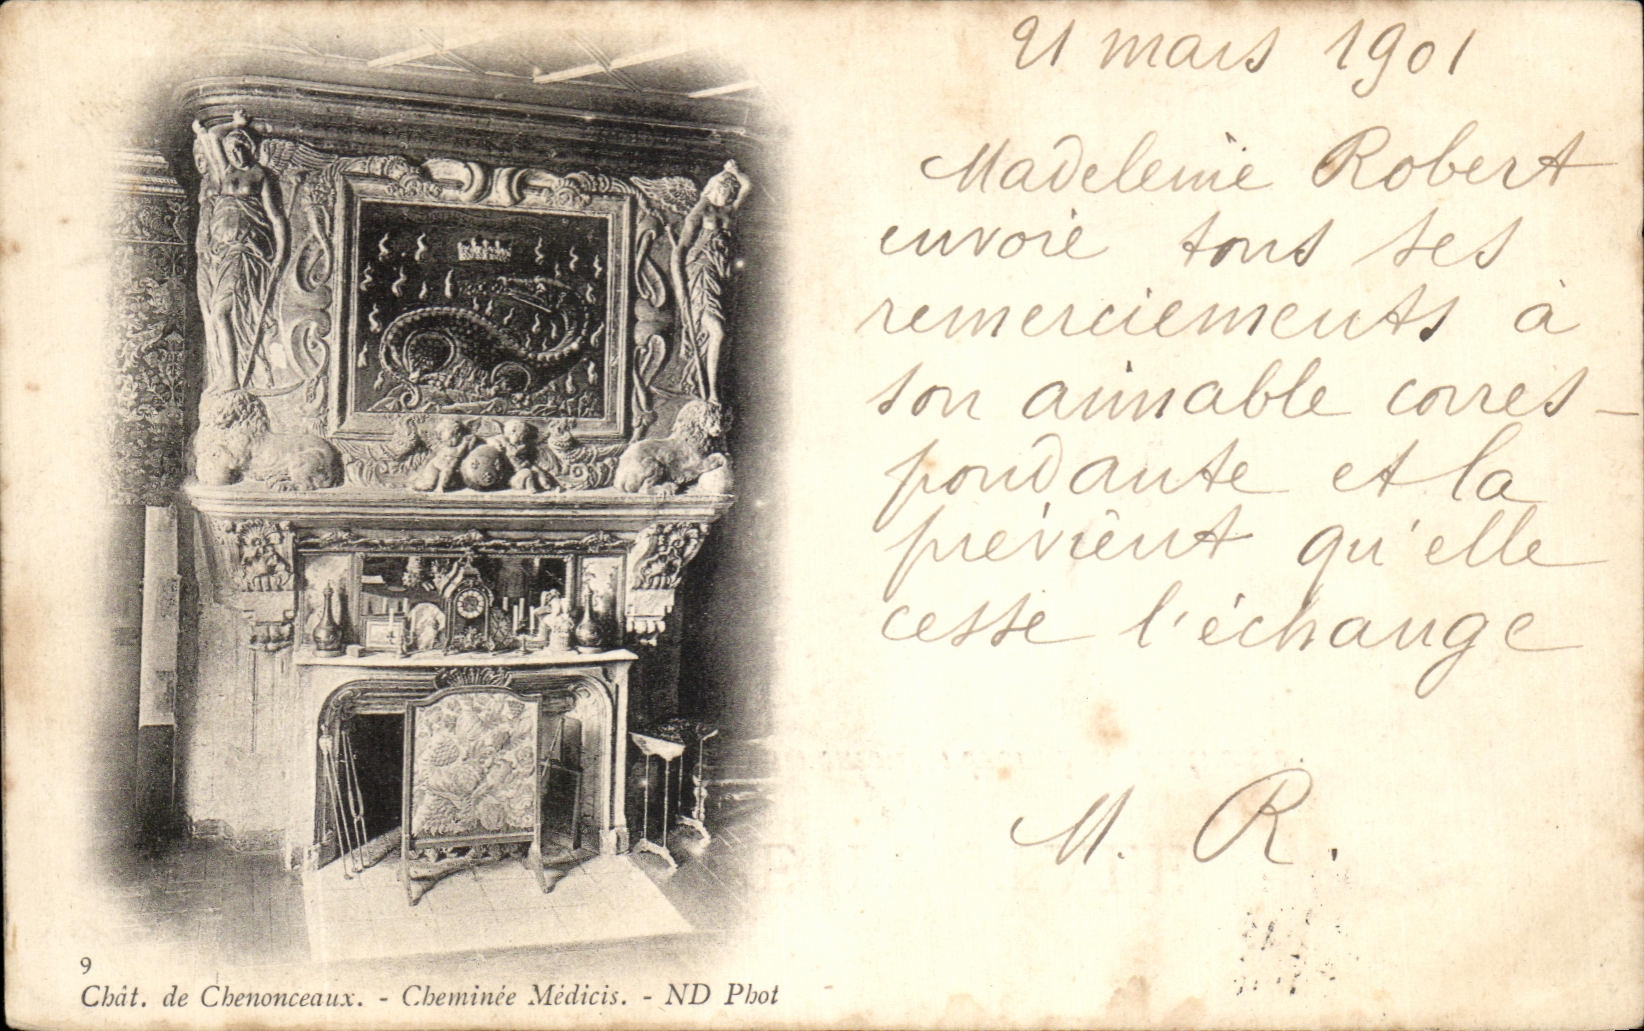 21 mars 1901
Madeleine Robert
envoie tous ses
remerciements à
son aimable corres-
pondante et la
prévient qu'elle
cesse l'échange
M. R.
9
Chât. de Chenonceaux. - Cheminée Médicis. - ND Phot